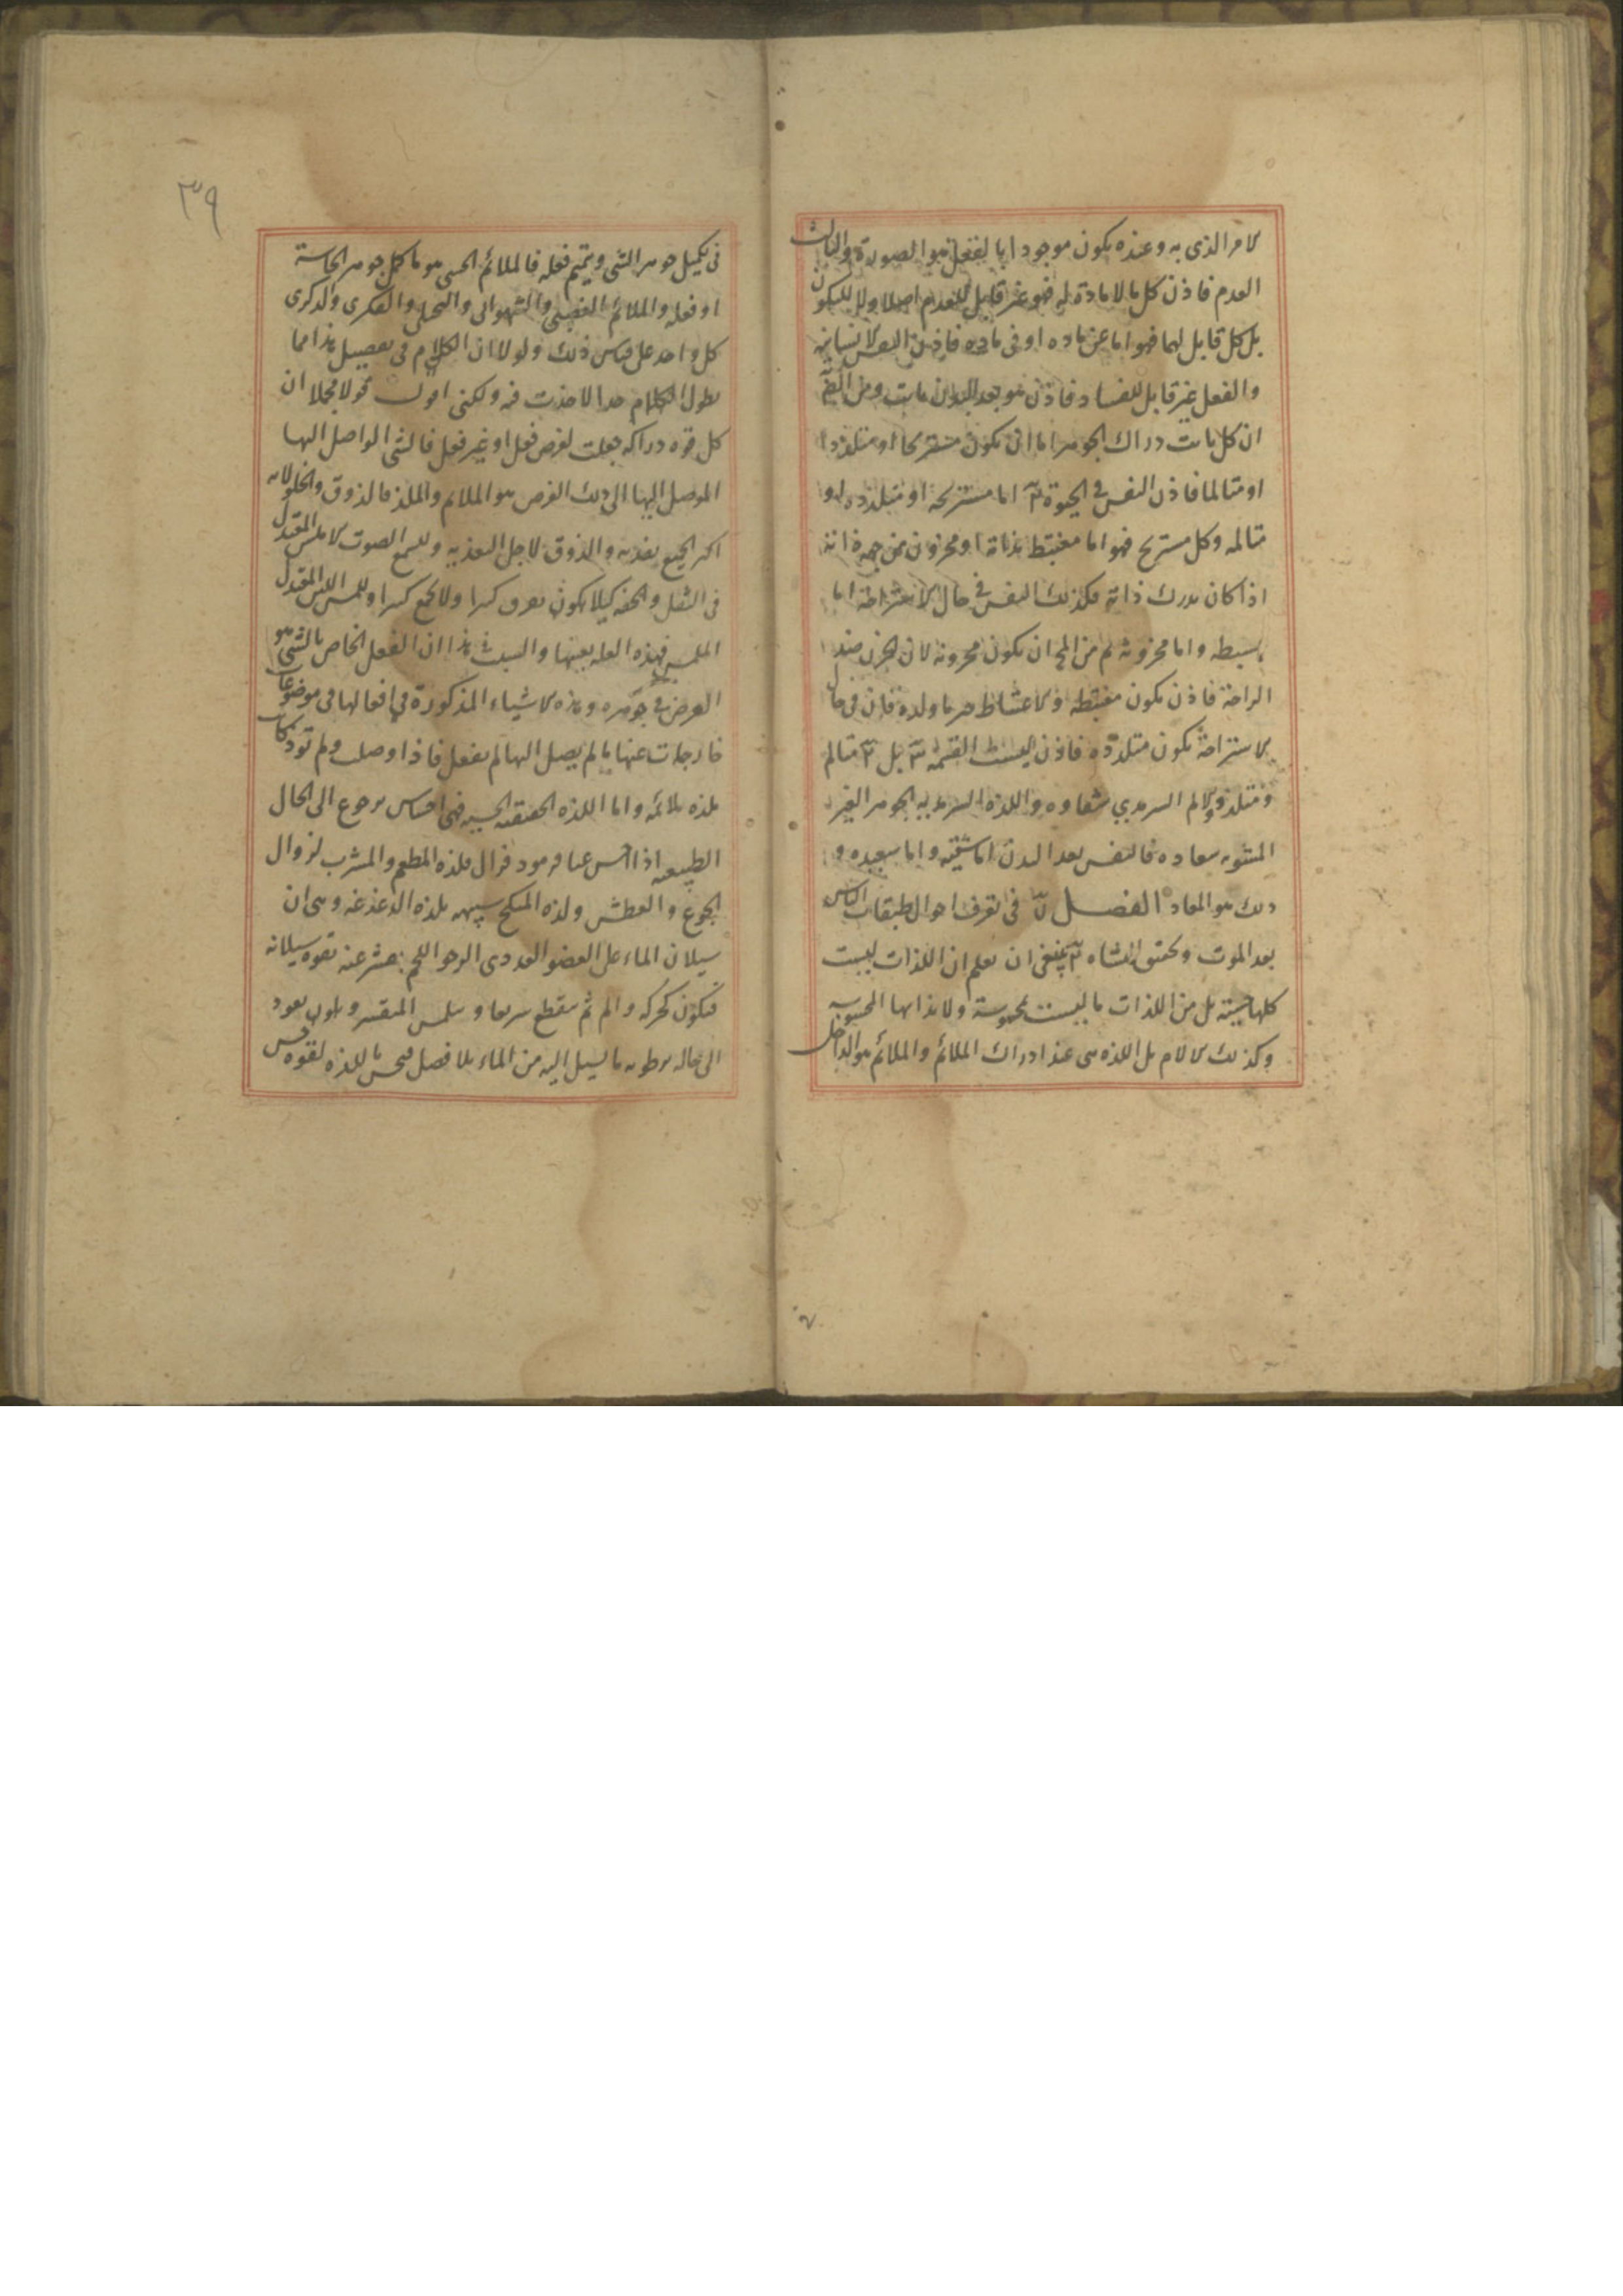 الامر الذى به وعنده يكون موجودا بالفعل هوا لصورة والثالث
العدم فاذن كل ما لا مادة له فهو غير قابل للعدم اصلا ولا للكون
بل كل قابل لهما فهو اما عن ماده او فى ماده فاذن النفس الانسانيه
والفعل غير قابل للفساد فاذن هو بعد البدن ثابت ومن
ان كل ثابت دراك الجوهر اما ان يكون مستريحا او متلذذا
او متالما فاذن النفس فى الحيوة اما مستريحه او متلذذه او
متالمه وكل مستريح فهو اما مغتبط بذاته او محزون من جهة ذاته
اذا كان يدرك ذاته فكذلك النفس فى حال الاستراحة اما
واما محزونه ثم من المح ان يكون محزونه لان الحزن ضد
الراحة فاذن يكون مغتبطه والاغتباط ما ولذة فان فى حال
الاستراحة يكون متلذذه فاذن ليست القسمة بل متالم
ومتلذذ والالم السرمدي شقاوه واللذة السرمديه الجوهر الغير
المشوبه سعاده فالنفس بعد البدن اما شقيه واما سعيده و
ذلك هو المعاد الفصل فى تعرف احوال طبقات الناس
بعد الموت وتحقيق النشاه ينبغى ان يعلم ان اللذات ليست
كلها حسيه بل من اللذات ما ليست محسوسة ولا المحسوسه
وكذلك الالام بل اللذه هى عند ادراك الملائم والملائم هو الداخل
٣٩
فى تكميل جوهر الشى وتتميم فعله فالملائم الحسى هو ما كمل جوهر الحاسة
او فعله والملائم الغضبى والشهوانى والتخيلى والفكرى والذكرى
كل واحد على قياس ذلك ولولا ان الكلام فى تفصيل هذا مما
يطول الكلام جدا لاخذت فيه ولكنى اقول قولا مجملا ان
كل قوه دراكه جعلت لغرض فعل او غير فعل فالشى الواصل اليها
الموصل اليها الى ذلك الغرض هو الملائم والملذ فالذوق
اكثر الجميع تغذيه والذوق لاجل التغذيه وللسمع الصوت الاملس المعتدل
فى الثقل والحفه كيلا يكون وللمس المعتدل
الملمس فهذه العله بعينها والسبب فى هذا ان الفعل الخاص بالشى هو
الغرض فى جوهره وهذه الاشياء المذكورة فى افعالها فى موضوعات
خارجات عنها ما لم يصل اليها لم يفعل فاذا وصلت ولم تؤذ
ملذه ملائمه واما اللذه الحقيقيه الحسيه فهى احساس برجوع الى الحال
الطبيعيه اذا فلذه المطعم والمشرب لزوال
الجوع والعطش ولذه المنكح شبيهه بلذه الدغدغه وهى ان
سيلان الماء على العضو الغددى الرخو اللحم بقوه سيلانه
فيكون كحركه والم ثم ينقطع سريعا و يعود
الى حاله برطوبه ما يسيل اليه من الماء بلا فصل فيحس باللذه لقوه حس